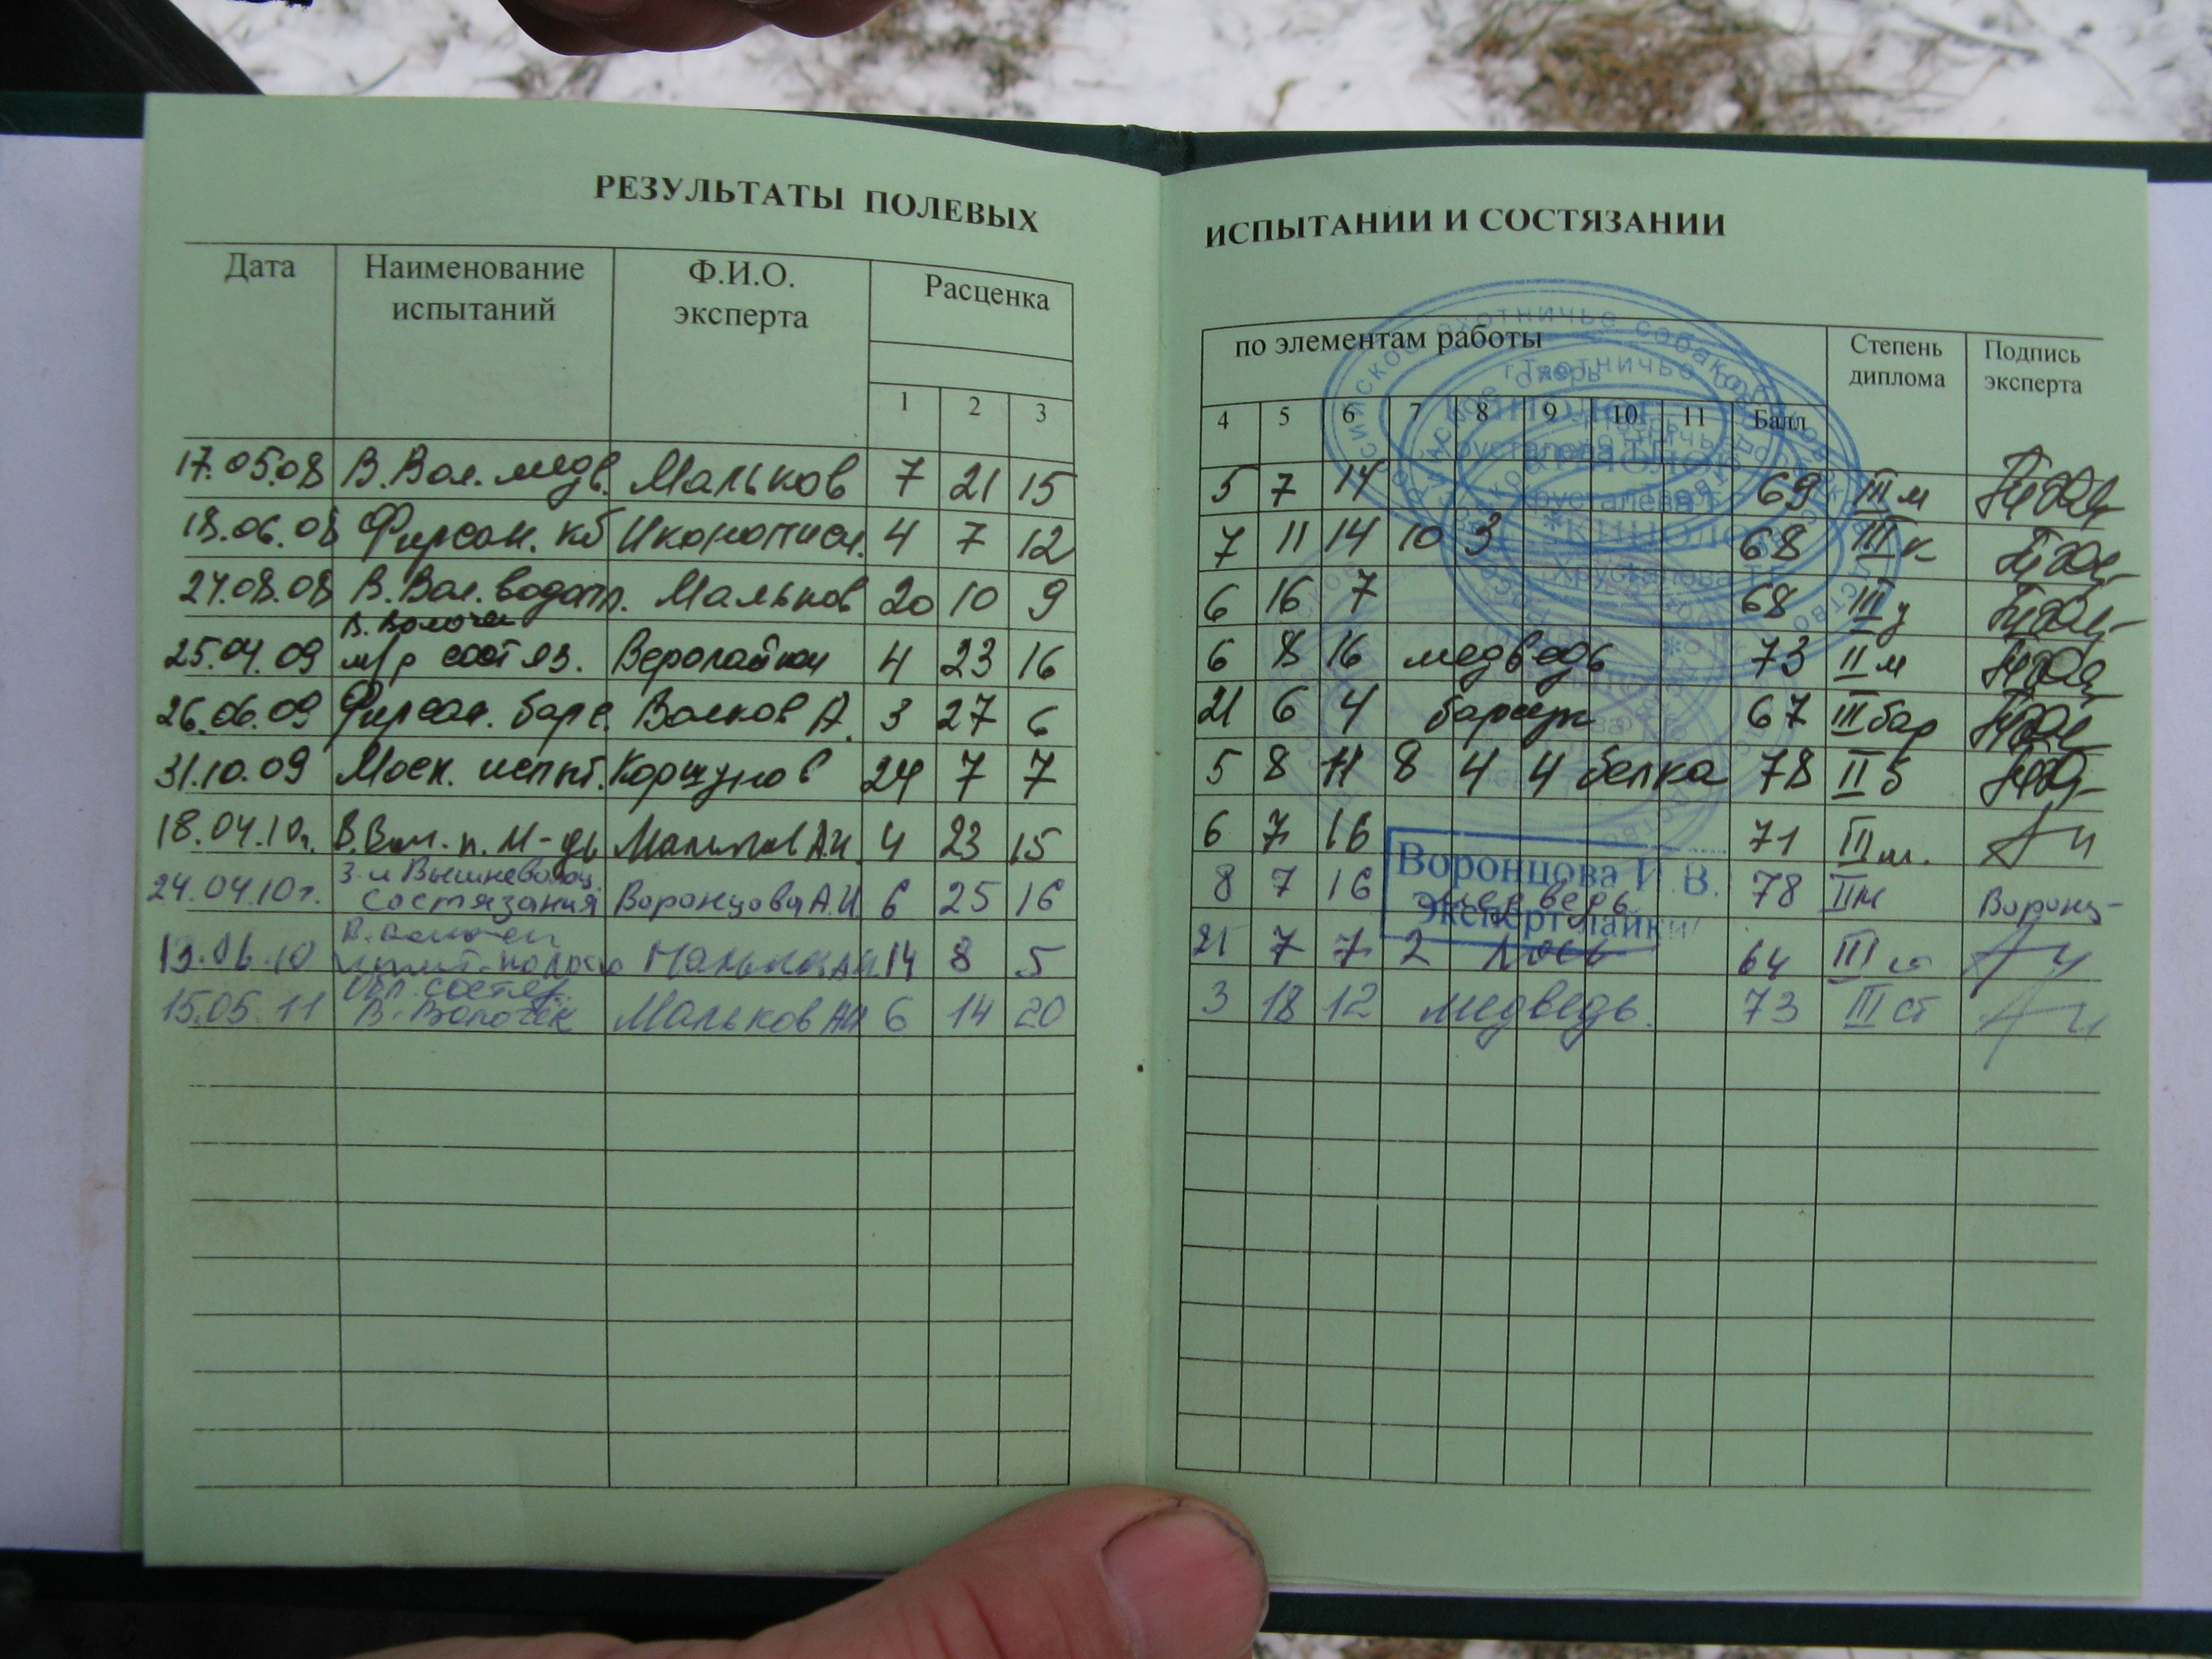 РЕЗУЛЬТАТЫ ПОЛЕВЫХ ИСПЫТАНИИ И СОСТЯЗАНИИ
Дата Наименование испытаний Ф.И.О. эксперта Расценка по элементам работы Степень диплома Подпись эксперта
1 2 3 4 5 6 7 8 9 10 11 Балл
17.05.08 В.Вол. медв. Мальков 7 21 15 5 7 14 69 III м
18.06.08 Фирсан. кб Иконописц. 4 7 12 7 11 14 10 3 68 III к
24.08.08 В.Вол. водопл. Мальков 20 10 9 6 16 7 68 III у
В. Волочек
25.04.09 м/р состяз. 4 23 16 6 8 16 медведь 73 II м
26.06.09 Фирсан. барс. Волков А. 3 27 6 21 6 4 барсук 67 III бар
31.10.09 Моск. испыт. Коршунов 24 7 7 5 8 11 8 4 4 белка 78 II б
18.04.10г. В.Вол. п. М-дь Мальков А.И. 4 23 15 6 7 16 71 III м.
3-и Вышневолоц.
24.04.10г. состязания Воронцова А.И. 6 25 16 8 7 16 медведь 78 II м Воронц-
Воронцова И.В.
Эксперт лайки
13.06.10 Мальков А.И. 14 8 5 21 7 7 2 лось 64 III ст
Обл. состяз.
15.05.11 В. Волочёк Мальков АИ 6 14 20 3 18 12 медведь. 73 III ст